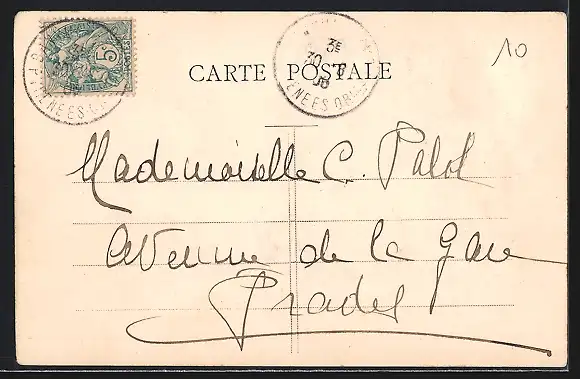 10
5
3E
30
06
CARTE POSTALE
PYRENEES
Mademoiselle C. Palot
Avenue de la Gare
Prades